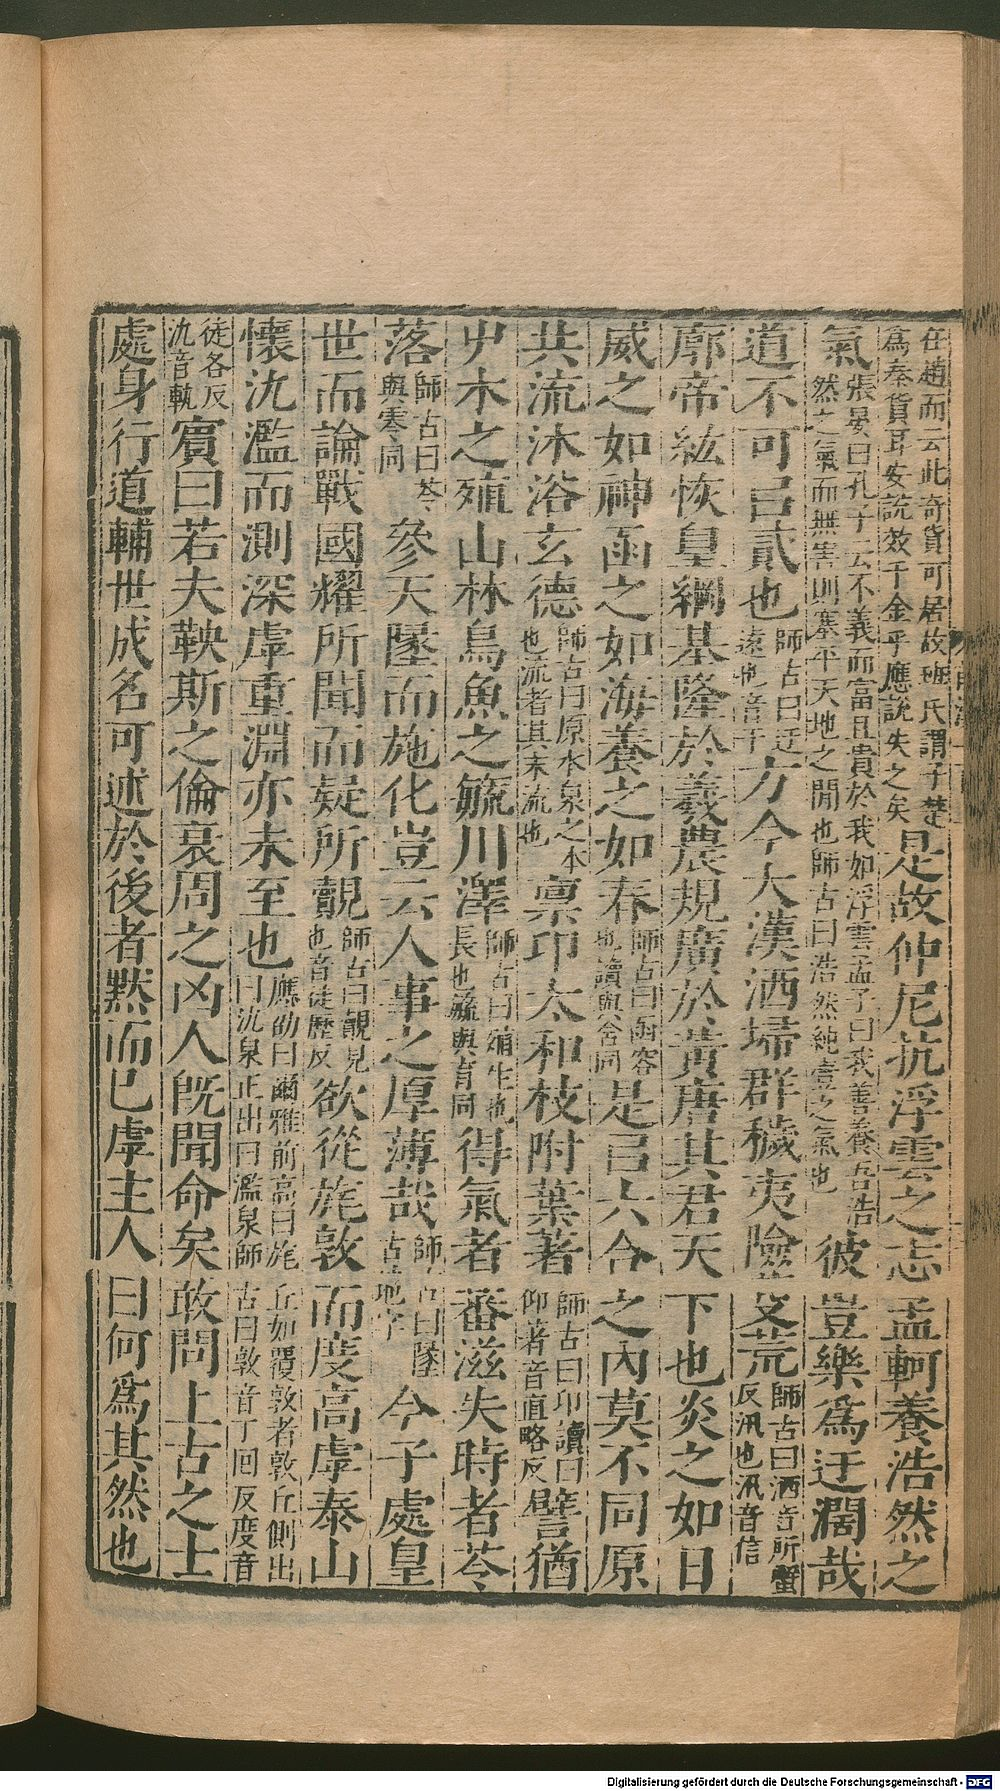 在趙而云此奇貨可居故班氏謂子楚
爲秦貨耳安說效千金乎應說失之矣
是故仲尼抗浮雲之志孟軻養浩然之
氣
張晏曰孔子云不義而富且貴於我如浮雲孟子曰我善養吾浩
然之氣而無害則塞乎天地之閒也師古曰浩然純壹之氣也
彼豈樂爲迂闊哉
道不可㠯貳也
師古曰迂
遠也音于
方今大漢洒埽群穢夷險芟荒
師古曰洒音所蟹
反汛也汛音信
廓帝紘恢皇綱基隆於羲農規廣於黃唐其君天下也炎之如日
威之如神函之如海養之如春
師古曰函容
也讀與含同
是㠯六合之內莫不同原
共流沐浴玄德
師古曰原水泉之本
也流者其末流也
稟卬太和枝附葉著
師古曰卬讀曰
仰著音直略反
譬猶
屮木之殖山林鳥魚之毓川澤
師古曰殖生也
長也毓與育同
得氣者蕃滋失時者苓
落
師古曰苓
與零同
參天墬而施化豈云人事之厚薄哉
師古曰墬
古地字
今子處皇
世而論戰國耀所聞而疑所覿
師古曰覿見
也音徒歷反
欲從旄敦而度高虖泰山
懷氿濫而測深虖重淵亦未至也
應劭曰爾雅前高曰旄丘如覆敦者敦丘側出
曰氿泉正出曰濫泉師古曰敦音丁回反度音
徒各反
氿音軌
賓曰若夫鞅斯之倫衰周之凶人旣聞命矣敢問上古之士
處身行道輔世成名可述於後者默而已虖主人曰何爲其然也
Digitalisierung gefördert durch die Deutsche Forschungsgemeinschaft - DFG